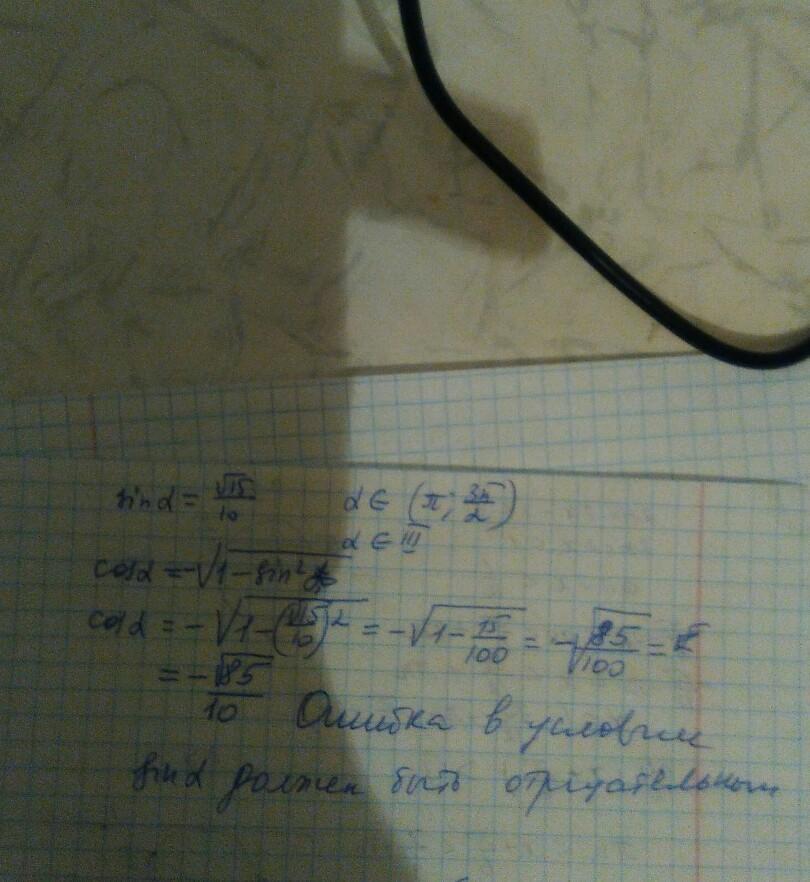 sin α = √15/10 α ∈ (π; 3π/2)
α ∈ III
cos α = -√(1 - sin² α)
cos α = -√(1 - (√15/10)²) = -√(1 - 15/100) = -√(85/100) =
= -√85/10 Ошибка в условии
sin α должен быть отрицательным